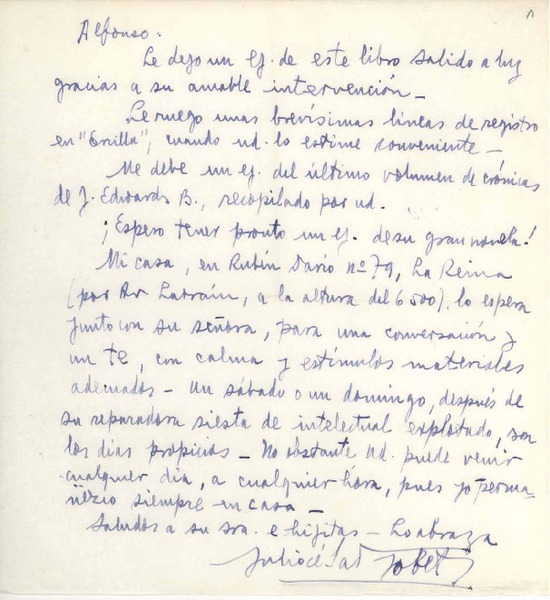 Alfonso:
Le dejo un ej. de este libro salido a luz
gracias a su amable intervención_
Le ruego unas brevísimas líneas de registro
en "Ercilla", cuando ud. lo estime conveniente_
Me debe un ej. del último volumen de crónicas
de J. Edwards B., recopilado por ud.
¡Espero tener pronto un ej. de su gran novela!
Mi casa, en Rubín Darío nº 79, La Reina
(por Av Larraín, a la altura del 6500). lo espera
junto con su señora, para una conversación y
un té, con calma y estímulos materiales
adecuados_ Un sábado o un domingo, después de
su reparadora siesta de intelectual explotado, son
los días propicios_ No obstante Ud. puede venir
cualquier día, a cualquier hora, pues yo perma-
nezco siempre en casa_
Saludos a su sra. e hijitas_ Lo abraza
Julio César Jobet